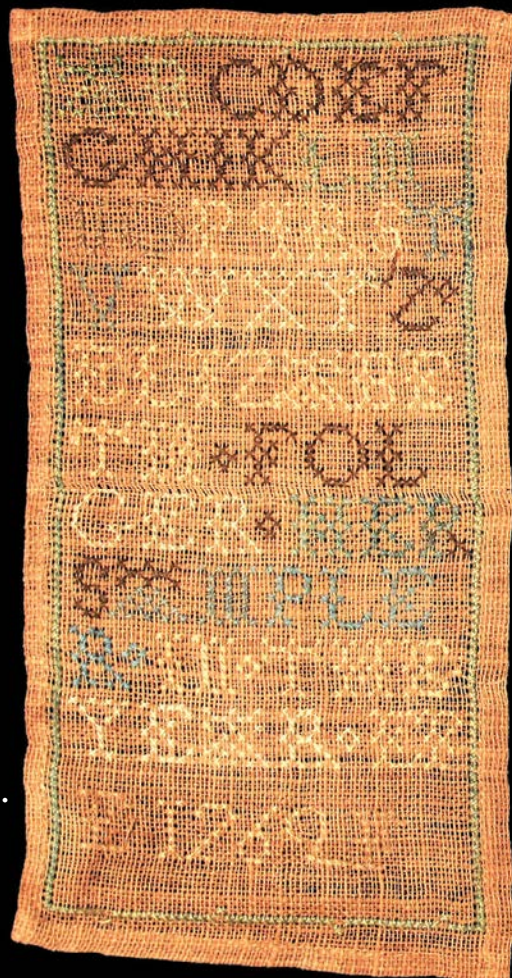 AB CDEF
GHIK LM
NO PQRST
V WXY Z
ELIZABE
TH • FOL
GER • HER
SAMPLE
R • IN • THE
YEAR •